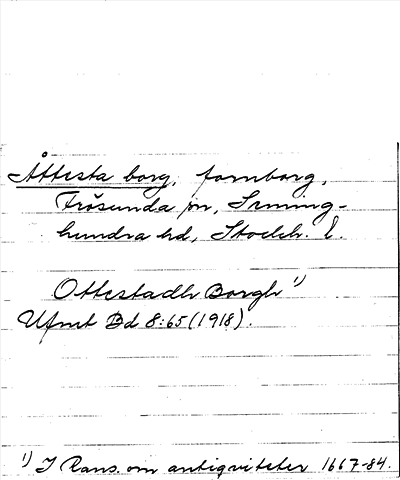 Åttesta borg, fornborg,
Frösunda sn, Seming-
hundra hd, Stockh. l.
Ottestadh Borgh ¹⁾
Ufmt Bd 8:65 (1918).
¹⁾ I Rans. om antiqviteter 1667-84.